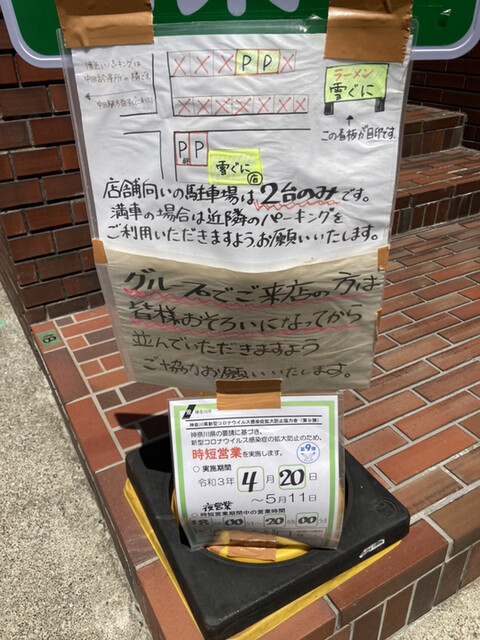 P P
ラーメン
雪ぐに
この看板が目印です
P P
雪ぐに
店舗向いの駐車場は2台のみです。
満車の場合は近隣のパーキングを
ご利用いただきますようお願いいたします。
グループでご来店の方は
皆様おそろいになってから
並んでいただきますよう
ご協力お願いいたします。
神奈川県新型コロナウイルス感染症拡大防止協力金(第9弾)
神奈川県の要請に基づき、
新型コロナウイルス感染症の拡大防止のため、
時短営業を実施します。
第9弾
○実施期間
令和3年 4月20日
～5月11日
夜営業
○時短営業期間中の営業時間
18 00 20 00